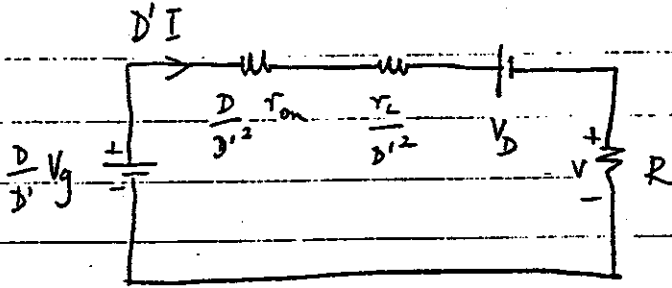 D' I
D/D'² r_on
r_L/D'²
V_D
D/D' Vg
+
-
+
V
-
R